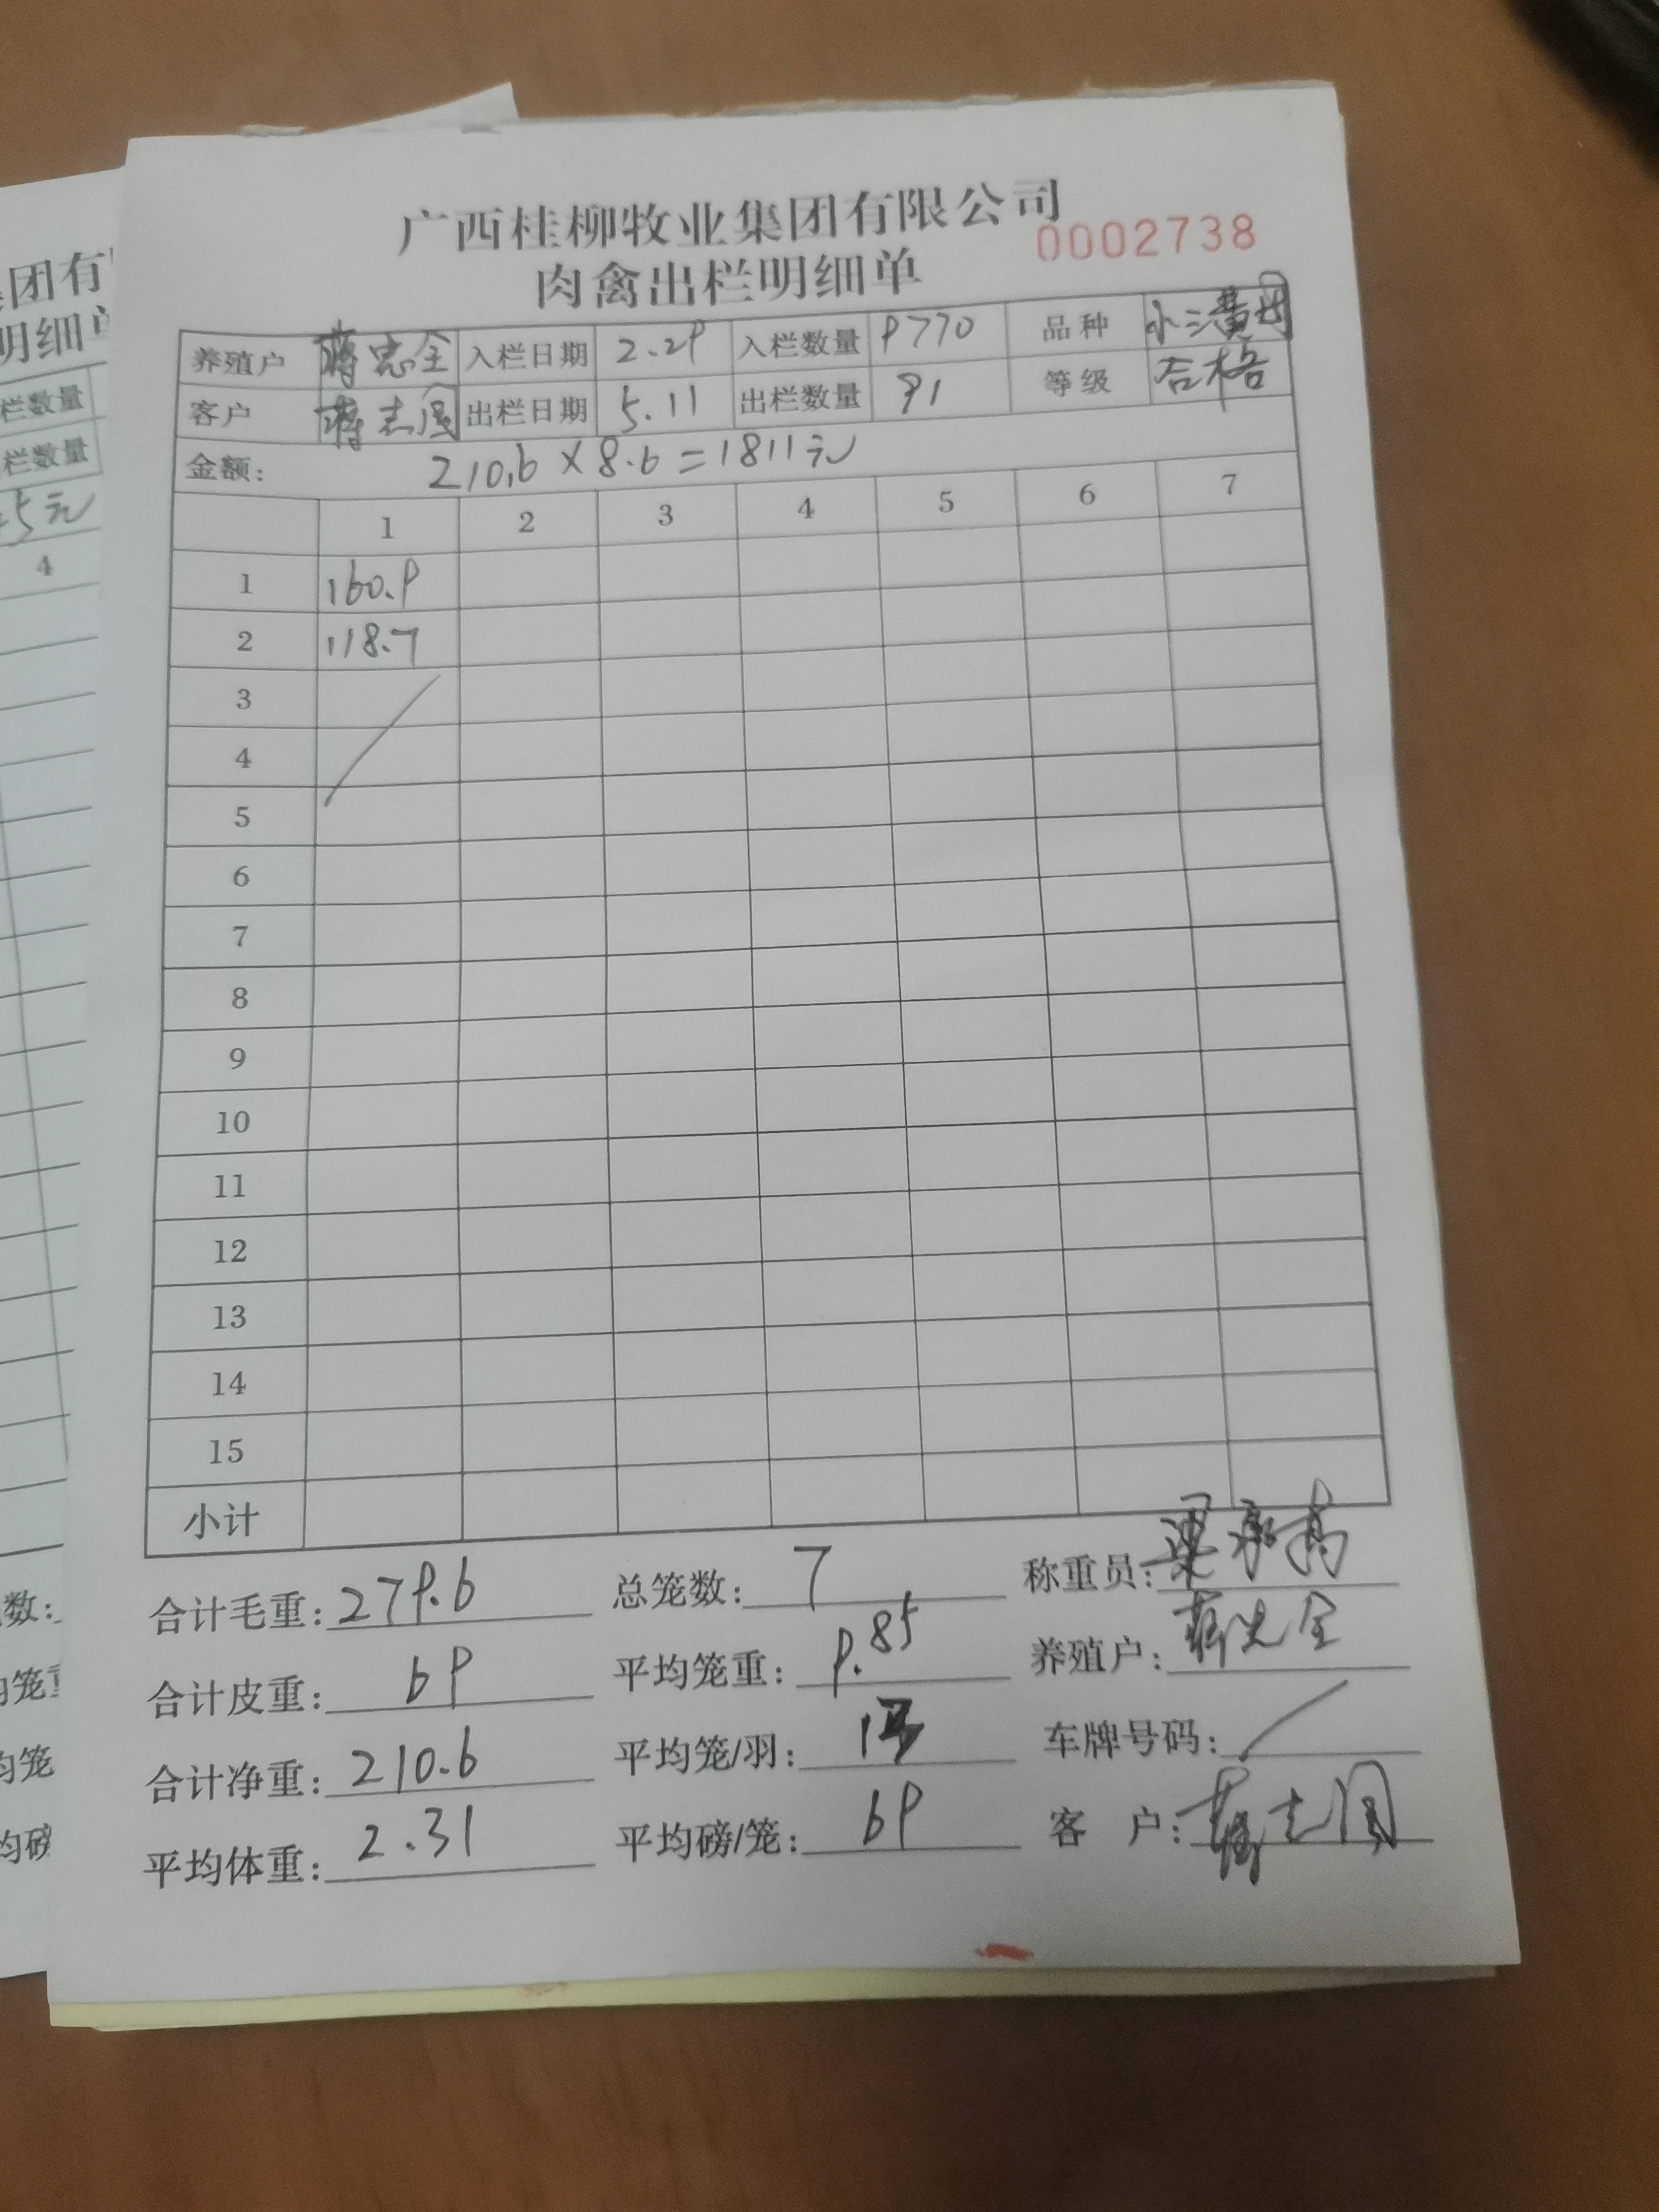 广西桂柳牧业集团有限公司
0002738
肉禽出栏明细单
养殖户 蒋忠全 入栏日期 2.29 入栏数量 9770 品种 小三黄
客户 蒋志国 出栏日期 5.11 出栏数量 91 等级 合格
金额: 210.6×8.6=1811元
1 2 3 4 5 6 7
1 160.9
2 118.7
3
4
5
6
7
8
9
10
11
12
13
14
15
小计
合计毛重: 279.6 总笼数: 7 称重员:
合计皮重: 69 平均笼重: 9.85 养殖户: 蒋忠全
合计净重: 210.6 平均笼/羽: 13 车牌号码:
平均体重: 2.31 平均磅/笼: 69 客 户: 蒋志国
集团有
明细单
栏数量
栏数量
5元
4
数:
均笼重
均笼
均磅